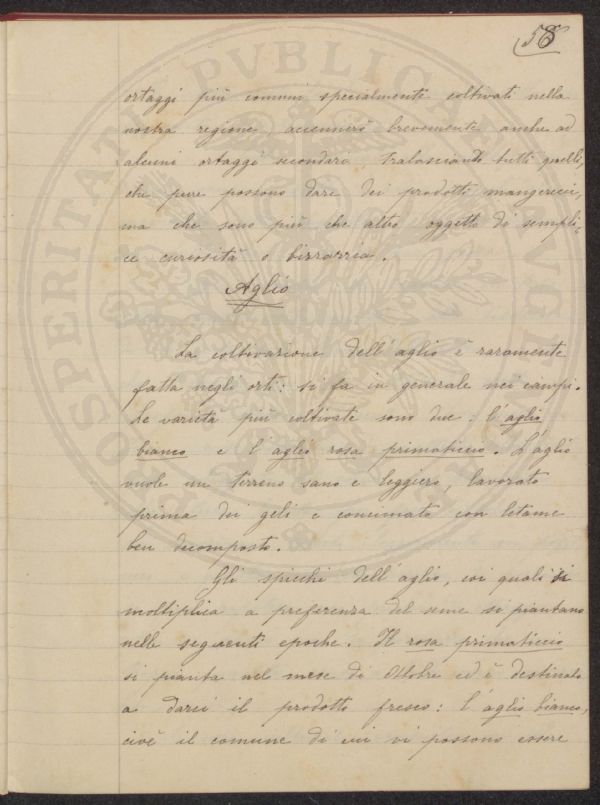 58
ortaggi più comuni specialmente coltivati nella
nostra regione, accennerò brevemente anche ad
alcuni ortaggi secondari, tralasciando tutti quelli,
che pure possono dare dei prodotti mangerecci,
ma che sono più che altro oggetto di sempli,
ce curiosità o bizzarria.
Aglio
La coltivazione dell'aglio è raramente
fatta negli orti: si fa in generale nei campi.
Le varietà più coltivate sono due: l'aglio
bianco e l'aglio rosa primaticcio. L'aglio
vuole un terreno sano e leggiero, lavorato
prima dei geli e concimato con letame
ben decomposto.
Gli spicchi dell'aglio, coi quali si
moltiplica a preferenza del seme si piantano
nelle seguenti epoche. Il rosa primaticcio
si pianta nel mese di Ottobre ed è destinato
a darci il prodotto fresco: l'aglio bianco,
cioè il comune di cui vi possono essere
PROSPERITATI PVBLICAE AVGENDAE